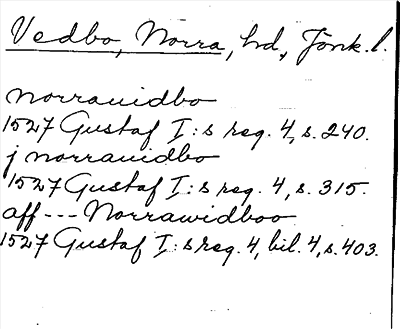 Vedbo, Norra, hd, Jönk. l.
norrauidbo
1527 Gustaf I:s reg. 4, s. 240.
j norrauidbo
1527 Gustaf I:s reg. 4, s. 315.
aff --- Norrawidboo
1527 Gustaf I:s reg. 4, bil. 4, s. 403.